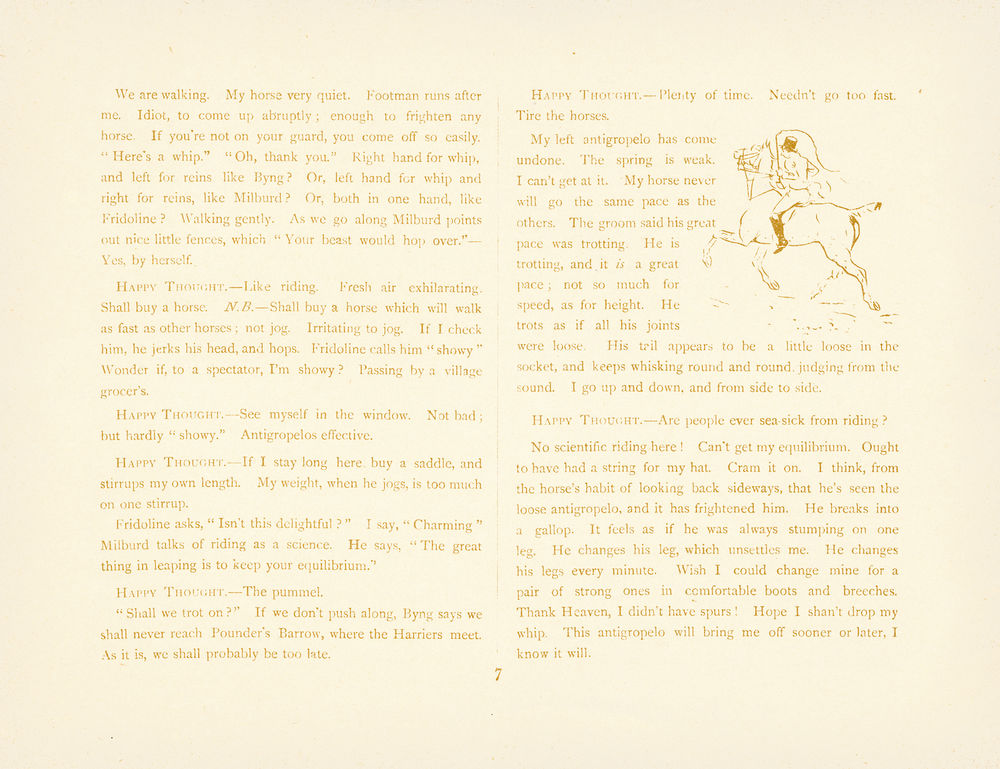 We are walking. My horse very quiet. Footman runs after
me. Idiot, to come up abruptly; enough to frighten any
horse. If you're not on your guard, you come off so easily.
"Here's a whip." "Oh, thank you." Right hand for whip,
and left for reins like Byng? Or, left hand for whip and
right for reins, like Milburd? Or, both in one hand, like
Fridoline? Walking gently. As we go along Milburd points
out nice little fences, which "Your beast would hop over."—
Yes, by herself.
HAPPY THOUGHT.—Like riding. Fresh air exhilarating.
Shall buy a horse. N.B.—Shall buy a horse which will walk
as fast as other horses; not jog. Irritating to jog. If I check
him, he jerks his head, and hops. Fridoline calls him "showy"
Wonder if, to a spectator, I'm showy? Passing by a village
grocer's.
HAPPY THOUGHT.—See myself in the window. Not bad;
but hardly "showy." Antigropelos effective.
HAPPY THOUGHT.—If I stay long here buy a saddle, and
stirrups my own length. My weight, when he jogs, is too much
on one stirrup.
Fridoline asks, "Isn't this delightful?" I say, "Charming"
Milburd talks of riding as a science. He says, "The great
thing in leaping is to keep your equilibrium."
HAPPY THOUGHT.—The pummel.
"Shall we trot on?" If we don't push along, Byng says we
shall never reach Pounder's Barrow, where the Harriers meet.
As it is, we shall probably be too late.
HAPPY THOUGHT.—Plenty of time. Needn't go too fast.
Tire the horses.
My left antigropelo has come
undone. The spring is weak.
I can't get at it. My horse never
will go the same pace as the
others. The groom said his great
pace was trotting. He is
trotting, and it is a great
pace; not so much for
speed, as for height. He
trots as if all his joints
were loose. His tail appears to be a little loose in the
socket, and keeps whisking round and round, judging from the
sound. I go up and down, and from side to side.
HAPPY THOUGHT.—Are people ever sea-sick from riding?
No scientific riding here! Can't get my equilibrium. Ought
to have had a string for my hat. Cram it on. I think, from
the horse's habit of looking back sideways, that he's seen the
loose antigropelo, and it has frightened him. He breaks into
a gallop. It feels as if he was always stumping on one
leg. He changes his leg, which unsettles me. He changes
his legs every minute. Wish I could change mine for a
pair of strong ones in comfortable boots and breeches.
Thank Heaven, I didn't have spurs! Hope I shan't drop my
whip. This antigropelo will bring me off sooner or later, I
know it will.
7